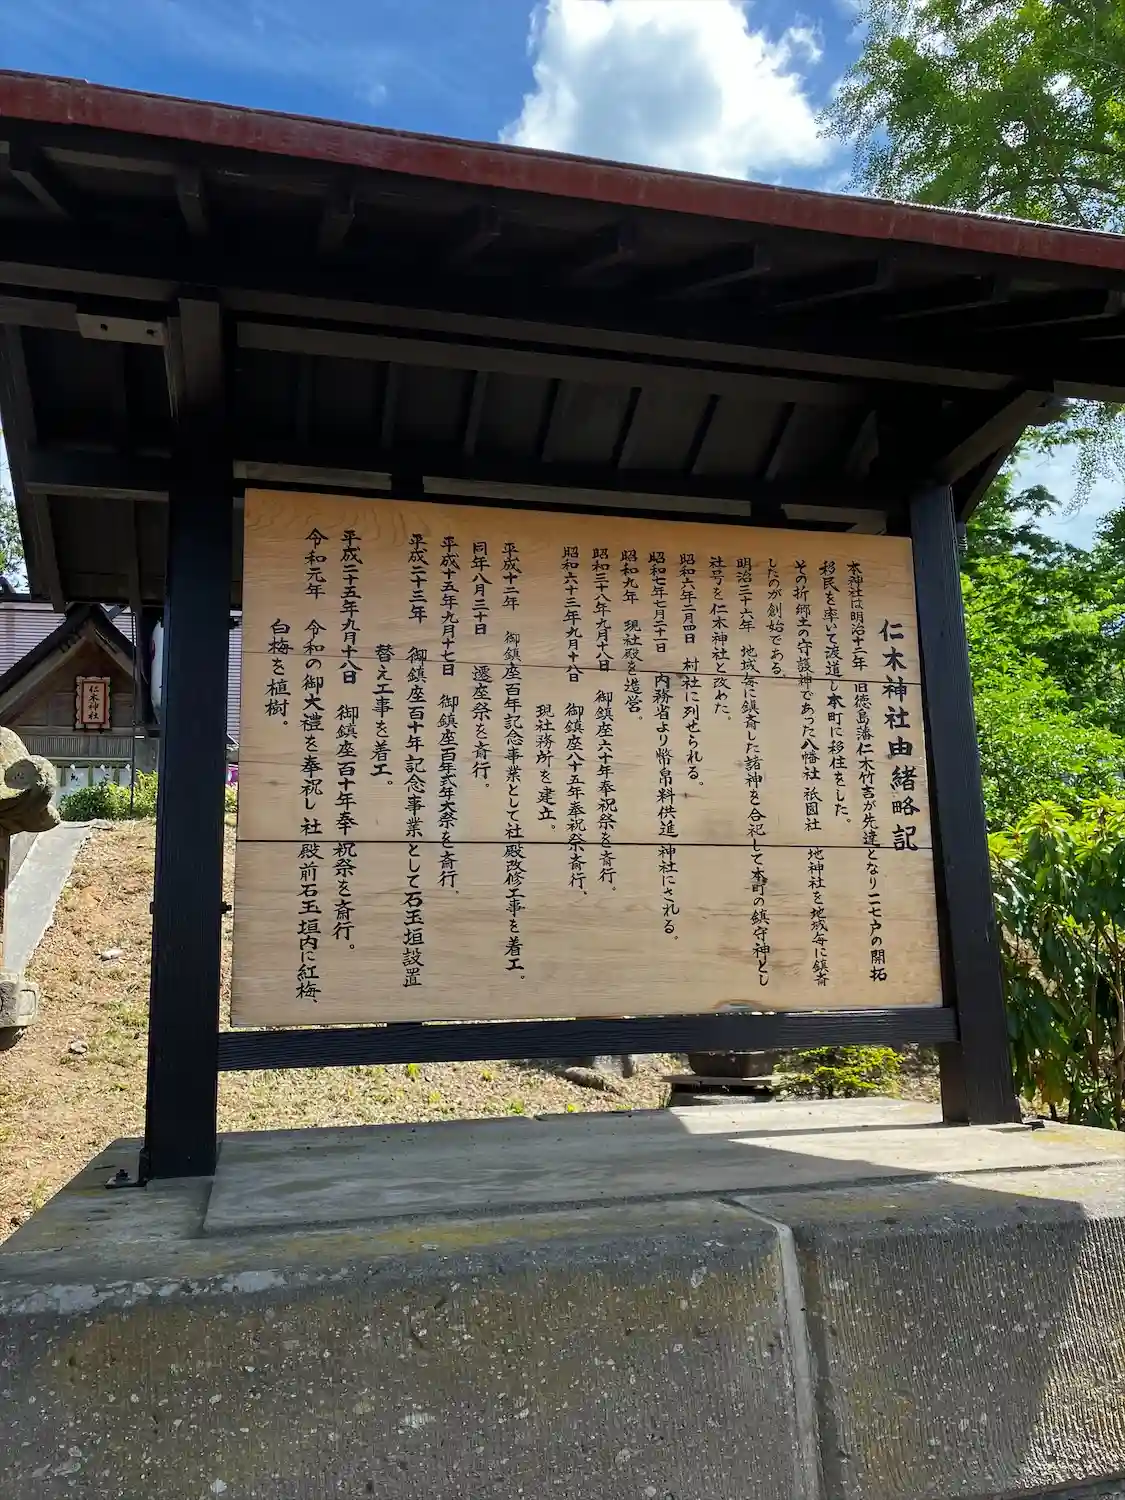 仁木神社由緒略記
本神社は明治十二年 旧徳島藩仁木竹吉が先達となり一一七戸の開拓
移民を率いて渡道し本町に移住をした。
その折郷土の守護神であった八幡社 祇園社 地神社を地域毎に鎮斎
したのが創始である。
明治三十六年 地域毎に鎮斎した諸神を合祀して本町の鎮守神とし
社号を仁木神社と改めた。
昭和六年二月四日 村社に列せられる。
昭和七年七月二十一日 内務省より幣帛料供進神社にされる。
昭和九年 現社殿を造営。
昭和三十八年九月十八日 御鎮座六十年奉祝祭を斎行。
昭和六十三年九月十八日 御鎮座八十五年奉祝祭斎行、
現社務所を建立。
平成十二年 御鎮座百年記念事業として社殿改修工事を着工。
同年八月三十日 遷座祭を斎行。
平成十五年九月十七日 御鎮座百年式年大祭を斎行。
平成二十三年 御鎮座百十年記念事業として石玉垣設置
替え工事を着工。
平成二十五年九月十八日 御鎮座百十年奉祝祭を斎行。
令和元年 令和の御大禮を奉祝し社殿前石玉垣内に紅梅、
白梅を植樹。
仁木神社